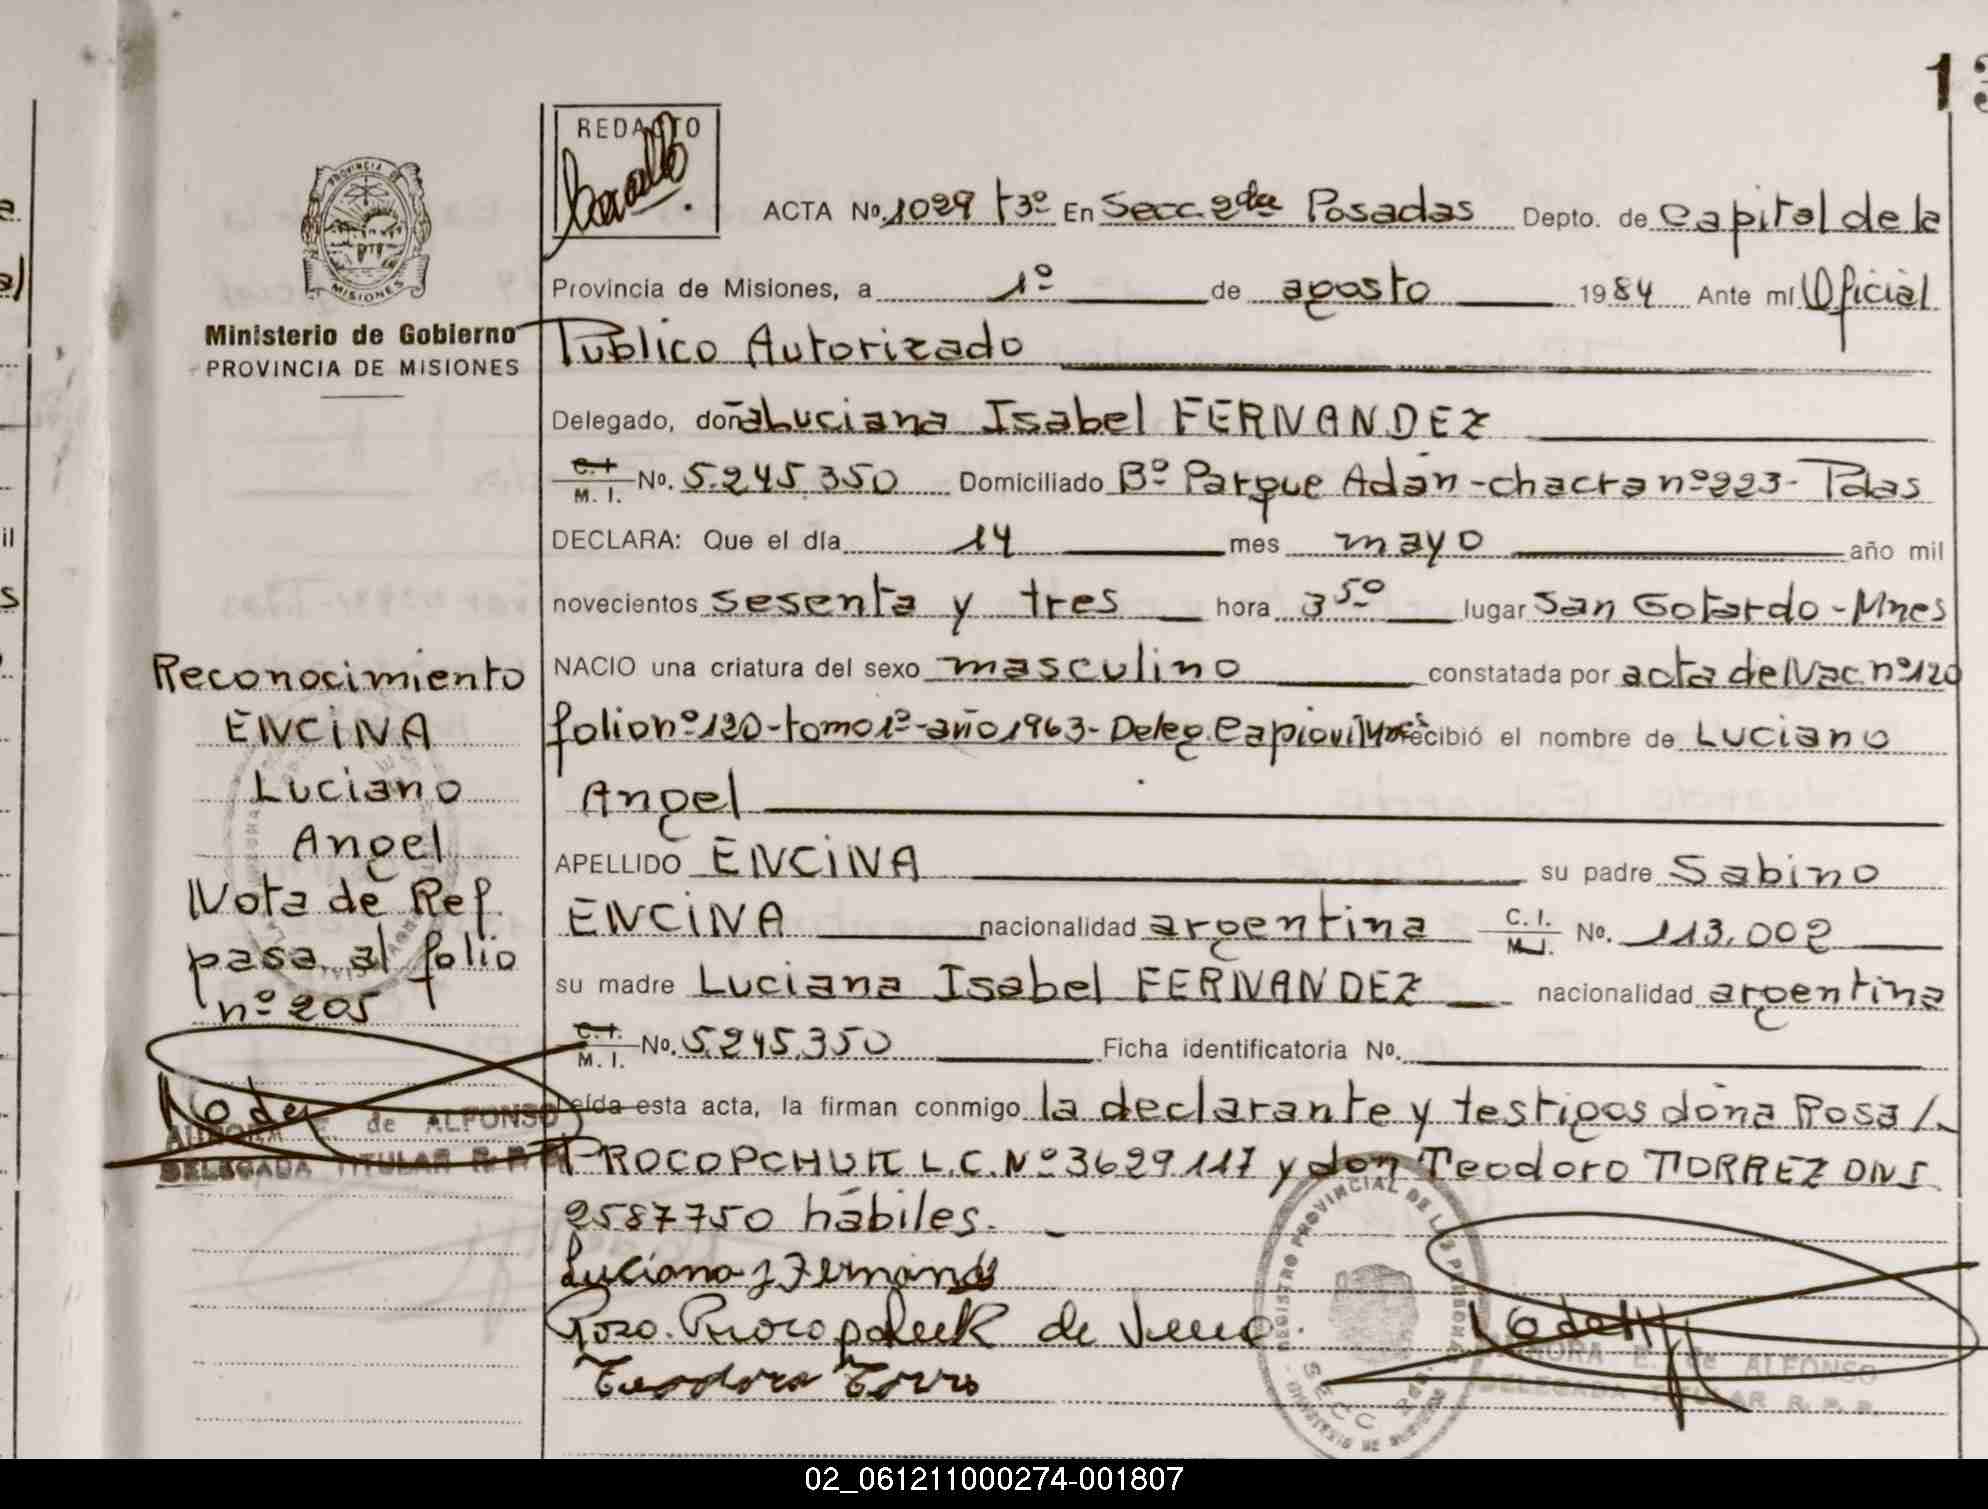 1
REDACTO
ACTA No. 1029 t3º En Secc. 2da Posadas Depto. de Capital de la
Provincia de Misiones, a 1º de agosto 1984 Ante mí Oficial
Público Autorizado
Delegado, doña Luciana Isabel FERNANDEZ
C.I. M.I. No. 5.245.350 Domiciliado Bº Parque Adán - chacra nº 223 - Pdas
DECLARA: Que el día 14 mes mayo año mil
novecientos sesenta y tres hora 3 50 lugar San Gotardo - Mnes
NACIO una criatura del sexo masculino constatada por acta de Nac nº 120
folio nº 120 - tomo 1º - año 1963 - Deleg. Capioví Mnes recibió el nombre de Luciano
Angel
APELLIDO ENCINA su padre Sabino
ENCINA nacionalidad argentina C.I. M.I. No. 113.002
su madre Luciana Isabel FERNANDEZ nacionalidad argentina
C.I. M.I. No. 5.245.350 Ficha identificatoria No.
Leída esta acta, la firman conmigo la declarante y testigos doña Rosa
PROCOPCHUK L.C. Nº 3629117 y don Teodoro TORREZ DNI
2587750 hábiles.
Luciana I Fernandes
Rosa Procopchuk de
Teodoro Torre
PROVINCIA DE
MISIONES
Ministerio de Gobierno
PROVINCIA DE MISIONES
Reconocimiento
ENCINA
Luciano
Angel
Nota de Ref.
pasa al folio
nº 205
AURORA E. de ALFONSO
DELEGADA TITULAR R. P. P.
REGISTRO PROVINCIAL DE LAS PERSONAS
SECC 2da.
AURORA E. de ALFONSO
DELEGADA TITULAR R. P. P.
02_061211000274-001807